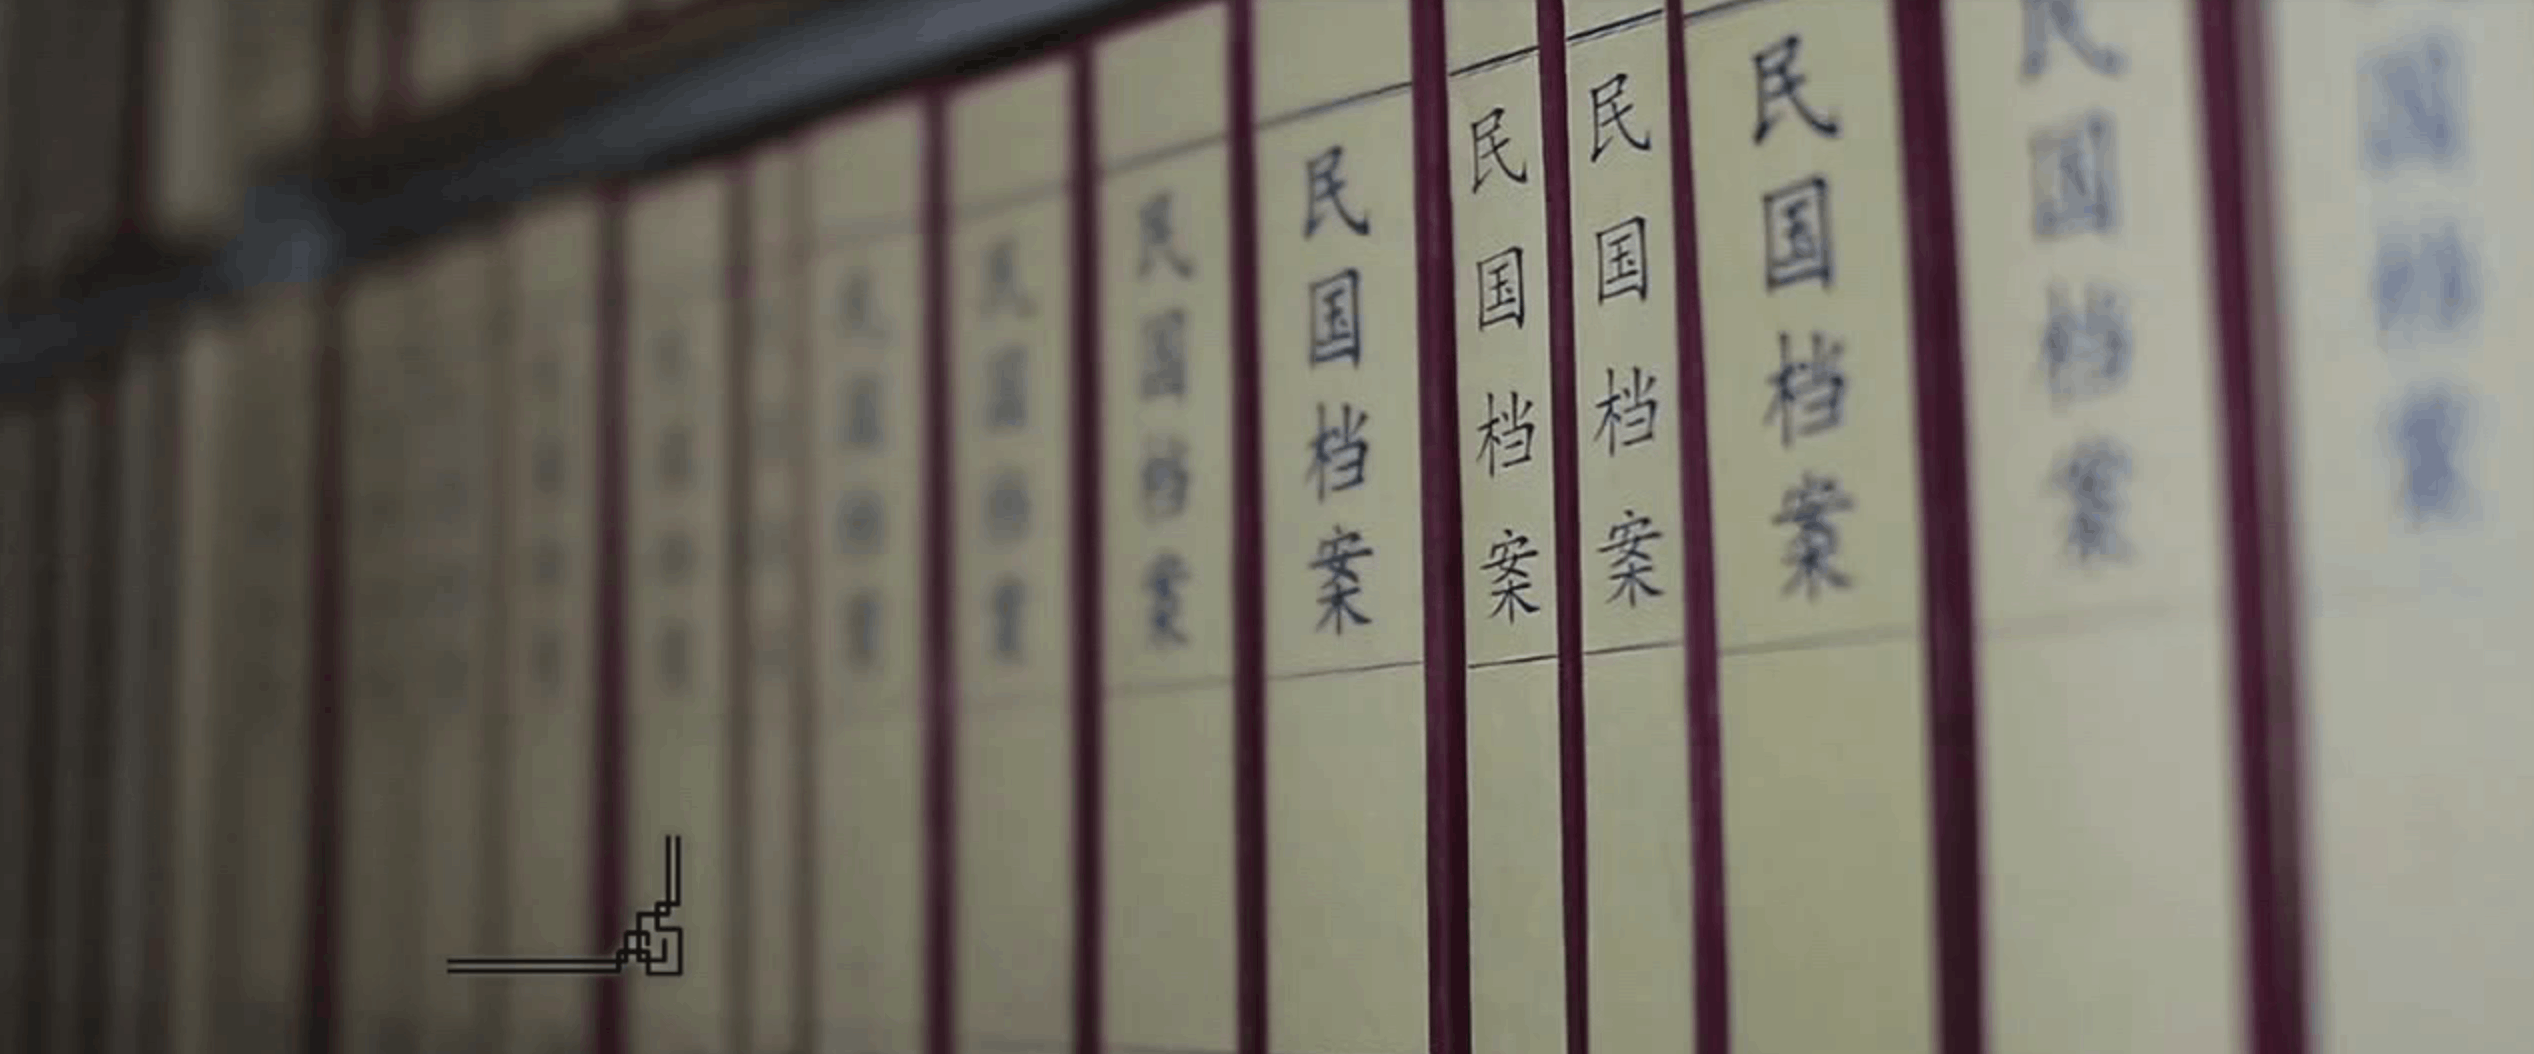 民国档案
民国档案
民国档案
民国档案
民国档案
民国档案
国档案